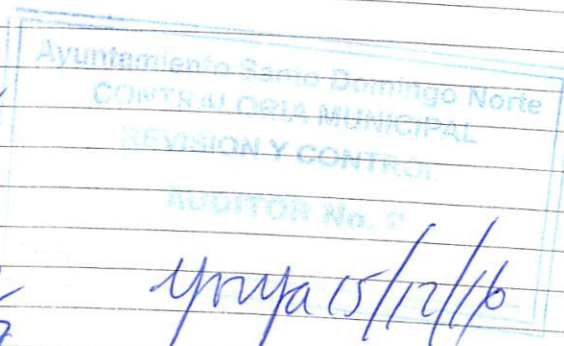 Ayuntamiento Santo Domingo Norte
CONTRALORIA MUNICIPAL
REVISION Y CONTROL
AUDITOR No. 2
15/12/16